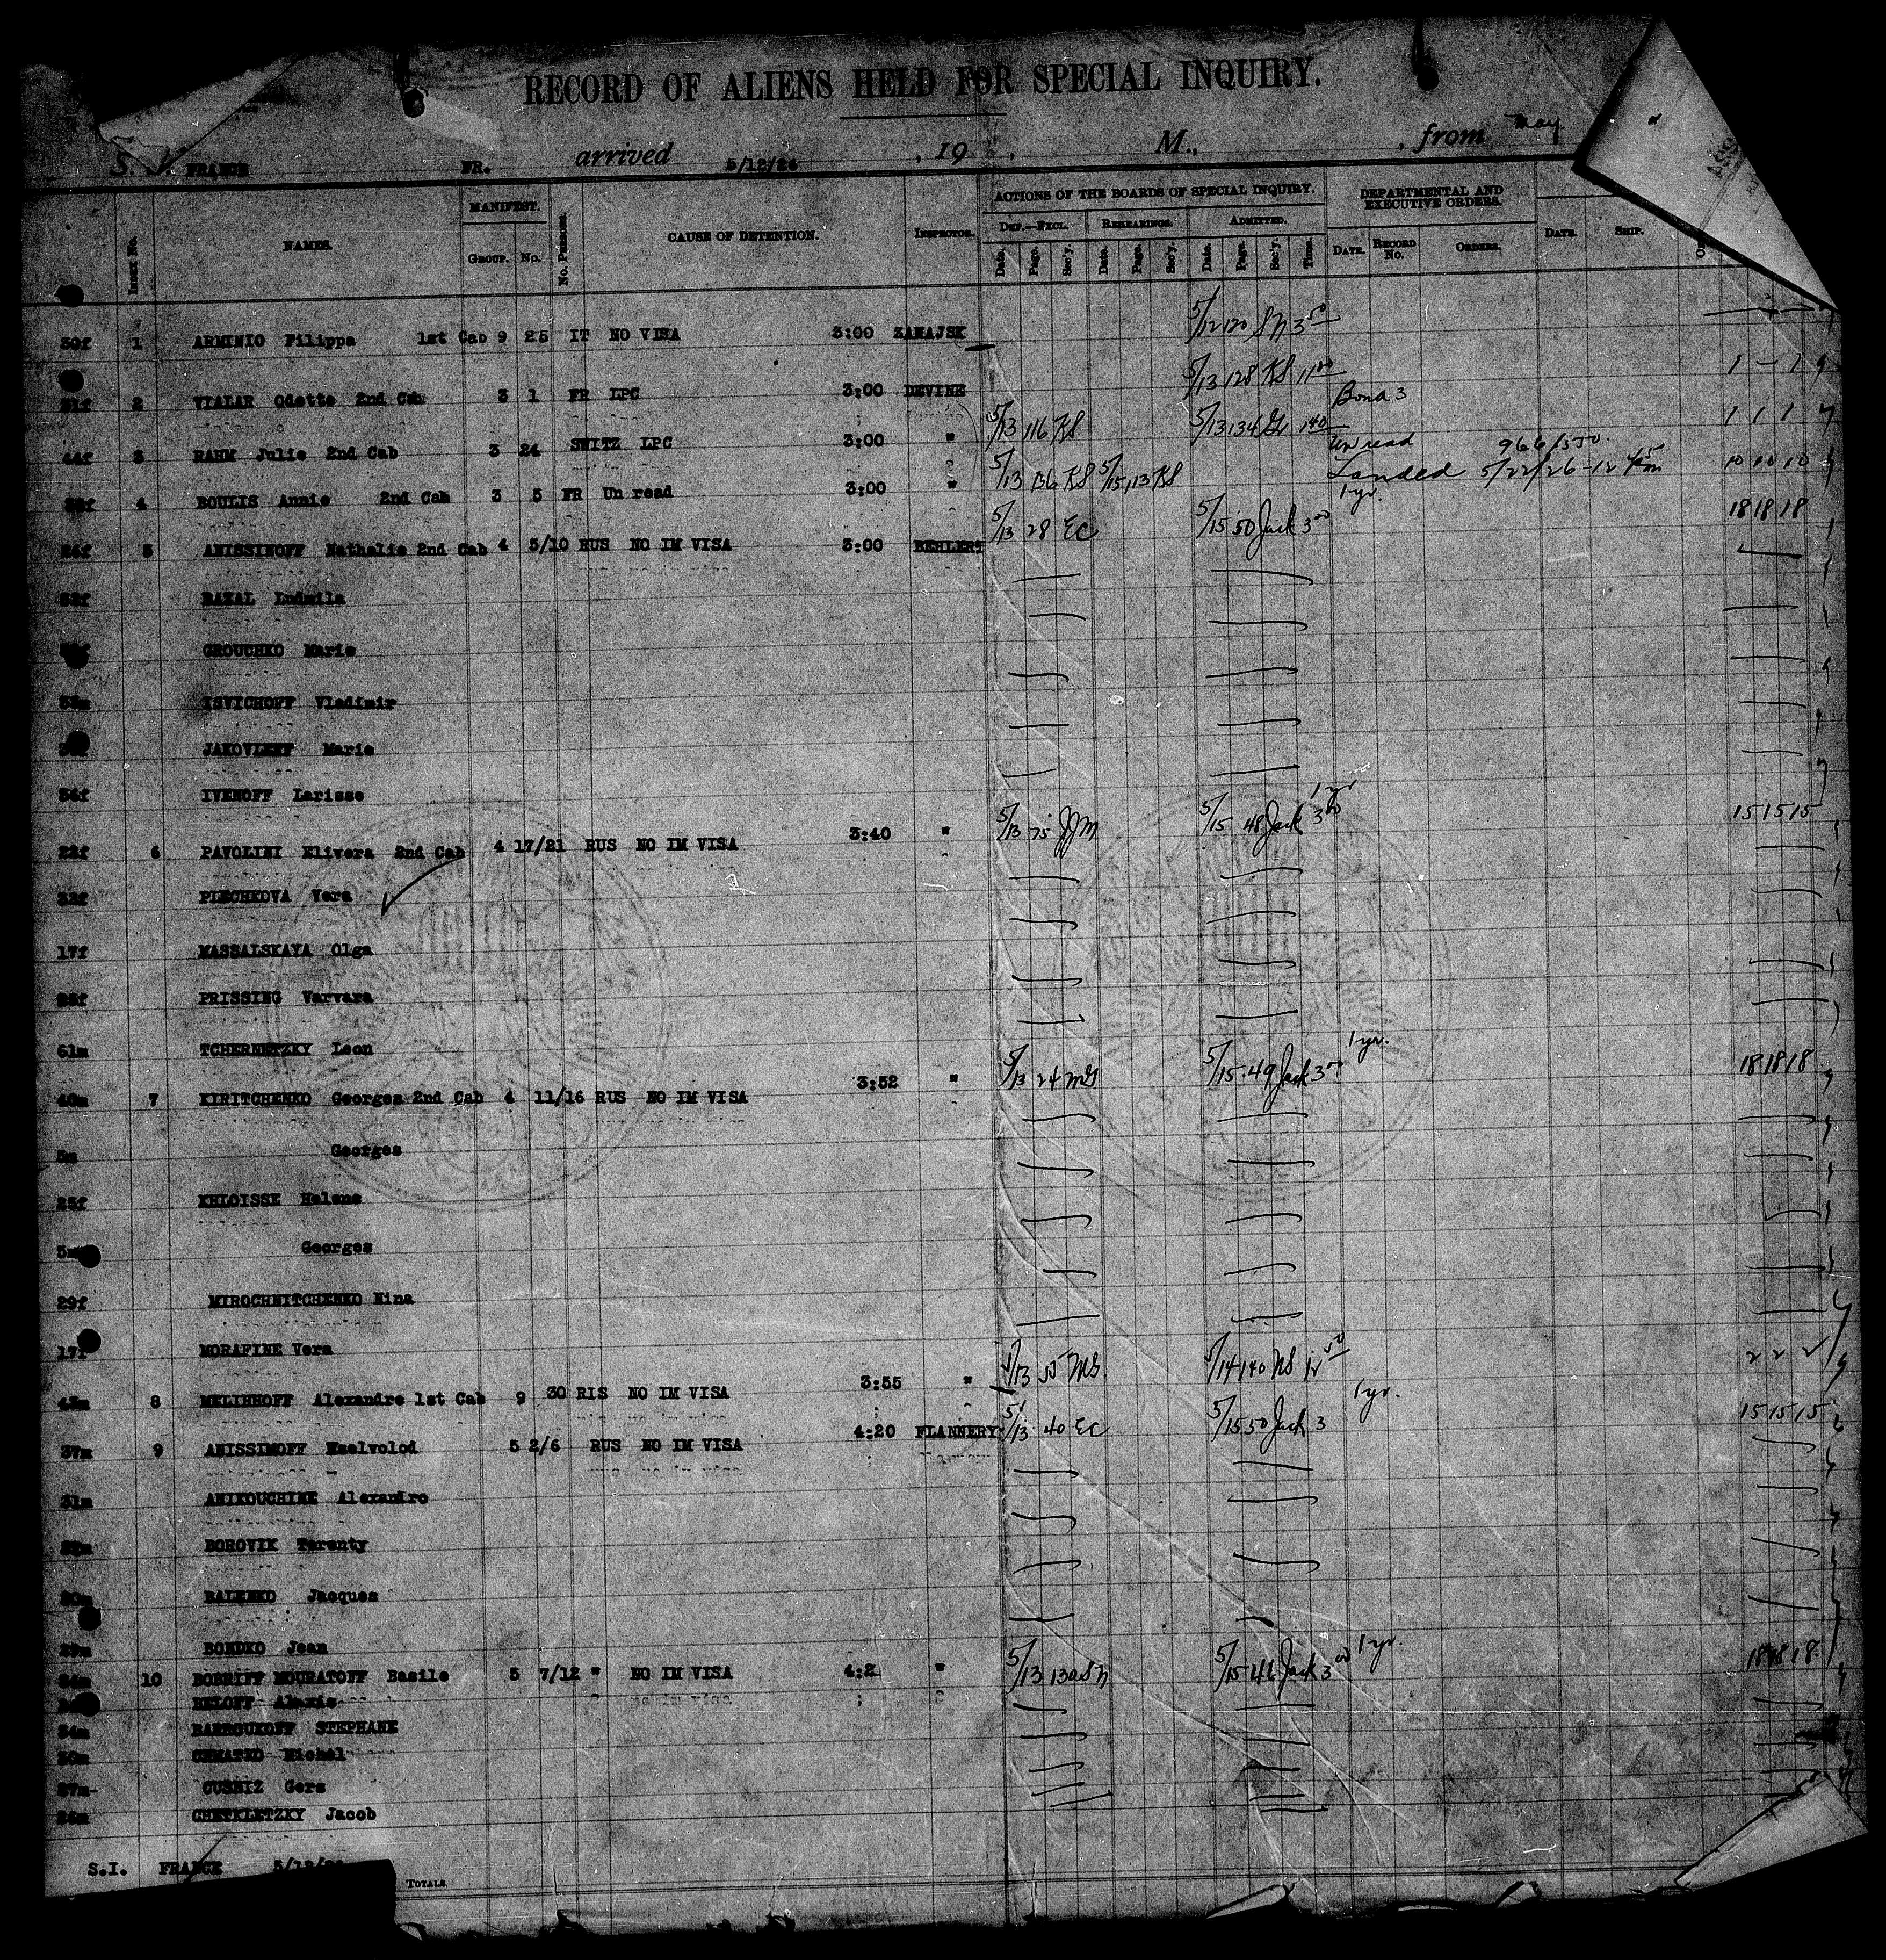 RECORD OF ALIENS HELD FOR SPECIAL INQUIRY.
S. S. FRANCE FR. arrived 5/12/26 , 19 , M., , from May
Index No. NAMES. MANIFEST. GROUP. No. No. Persons. CAUSE OF DETENTION. INSPECTOR. ACTIONS OF THE BOARDS OF SPECIAL INQUIRY. DEF.—EXCL. Date. Page. Sec'y. REHEARINGS. Date. Page. Sec'y. ADMITTED. Date. Page. Sec'y. Time. DEPARTMENTAL AND EXECUTIVE ORDERS. DATE. RECORD No. ORDERS. DATE. SHIP.
30f 1 ARMINIO Filippa 1st Cab 9 25 IT NO VISA 3:00 ZAMAJSK 5/12 120 SN 3 50
31f 2 VIALAR Odette 2nd Cab 3 1 FR LPC 3:00 DEVINE 5/13 128 KS 11 00 1 - 1
44f 3 RAHM Julie 2nd Cab 3 24 SWITZ LPC 3:00 " 5/13 116 KS 5/13 134 1 40 Bond 3 1 1 1
4 BOULIS Annie 2nd Cab 3 5 FR Un read 3:00 " 5/13 136 KS 5/15 113 KS Un read 966/550 Landed 5/22/26-12 45 Pm 10 10 10
5 ANISSIMOFF Nathalie 2nd Cab 4 5/10 RUS NO IM VISA 3:00 BEHLERT 5/13 28 EC 5/15 50 Jack 3 00 1 yr. 18 18 18
BAKAL Ludmila
GROUCHKO Marie
ISVICHOFF Vladimir
JAKOVLEFF Marie
34f IVENOFF Larisse
22f 6 PAVOLINI Elivera 2nd Cab 4 17/21 RUS NO IM VISA 3:40 " 5/13 75 JJM 5/15 48 Jack 3 00 1 yr 15 15 15
32f PLECHKOVA Vera
17f MASSALSKAYA Olga
25f PRISSING Varvara
51m TCHERNETZKY Leon
40m 7 KIRITCHENKO Georges 2nd Cab 4 11/16 RUS NO IM VISA 3:52 " 5/13 24 MS 5/15 49 Jack 3 00 1 yr. 18 18 18
5m Georges
25f KHLOISSE Helene
5m Georges
29f MIROCHNITCHENKO Nina
17f MORAFINE Vera
43m 8 MELIHHOFF Alexandre 1st Cab 9 30 RIS NO IM VISA 3:55 " 5/13 55 MS. 5/14 140 NS 12 50 2 2 2
37m 9 ANISSIMOFF Wselvolod 5 2/6 RUS NO IM VISA 4:20 FLANNERY 5/13 40 EC 5/15 50 Jack 3 1 yr. 15 15 15
31m ANIKOUCHINE Alexandre
BOROVIK Terenty
30m BALENKO Jacques
29m BOHDKO Jean
34m 10 BOBRIFF MOURATOFF Basile 5 7/12 " NO IM VISA 4:2 " 5/13 130 SN 5/15 46 Jack 3 00 1 yr. 18 18 18
BELOFF Alexis
34m BAERGUKOFF STEPHANE
30m CHMATKO Michel
27m CUSNIZ Gers
24m CHETKLETZKY Jacob
S.I. FRANCE 5/12/26
TOTALS.